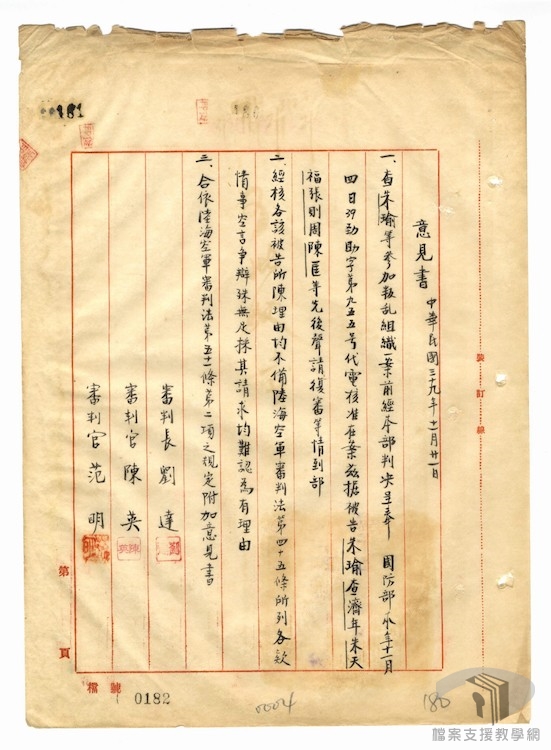 意見書 中華民國三十九年十一月廿一日
一、查朱瑜等參加叛乱組織一案前經本部判决呈奉 國防部本年十一月
四日汐劲助字第九五五号代電核准在案茲据被告朱瑜查濟年朱天
福張則周陳匡等先後聲請復審等情到部
二、經核各該被告所陳理由均不備陸海空軍審判法第四十五條所列各款
情事空言爭辯殊無足採其請求均難認為有理由
三、合依陸海空軍審判法第五十一條第二項之規定附加意見書
審判長 劉達
審判官 陳英
審判官 范明
裝訂線
第 頁
檔號
0182
0004
180
181
檔案支援教學網